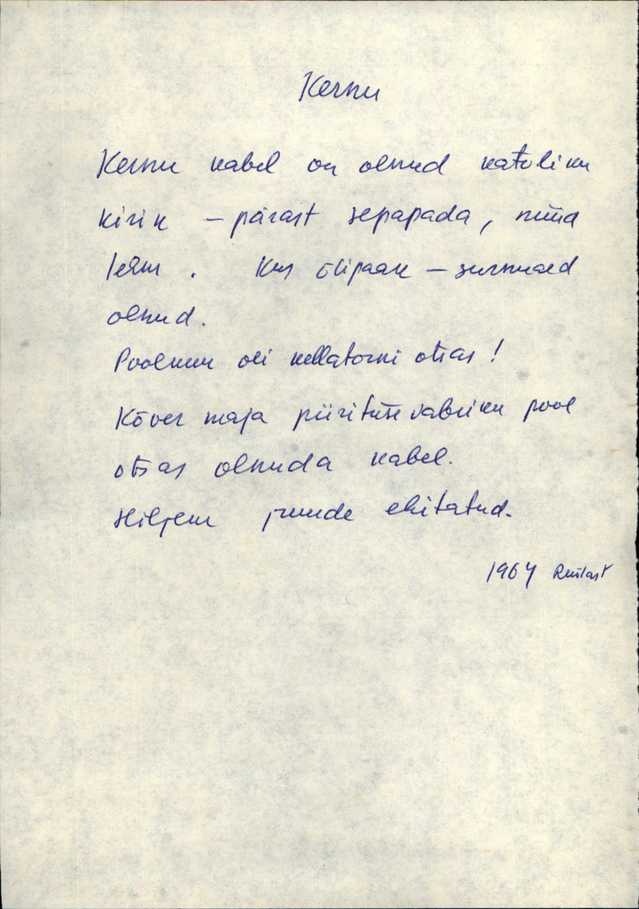 Kernu
Kernu kabel on olnud katoliku
kirik – pärast sepapada, nüüd
. Kus õlipaak – surnuaed
olnud.
Poolkuu oli kellatorni otsas!
Kõver maja piiritusevabriku pool
otsas olnuda kabel.
Hiljem juurde ehitatud.
1964